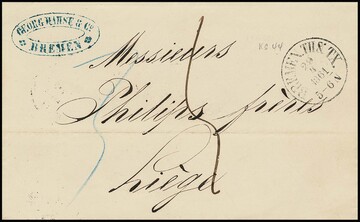 GEORG MARSE & Cº
BREMEN
Messieurs
Philips frères
Liège
BREMEN TH. & TX.
1861
5-6 N